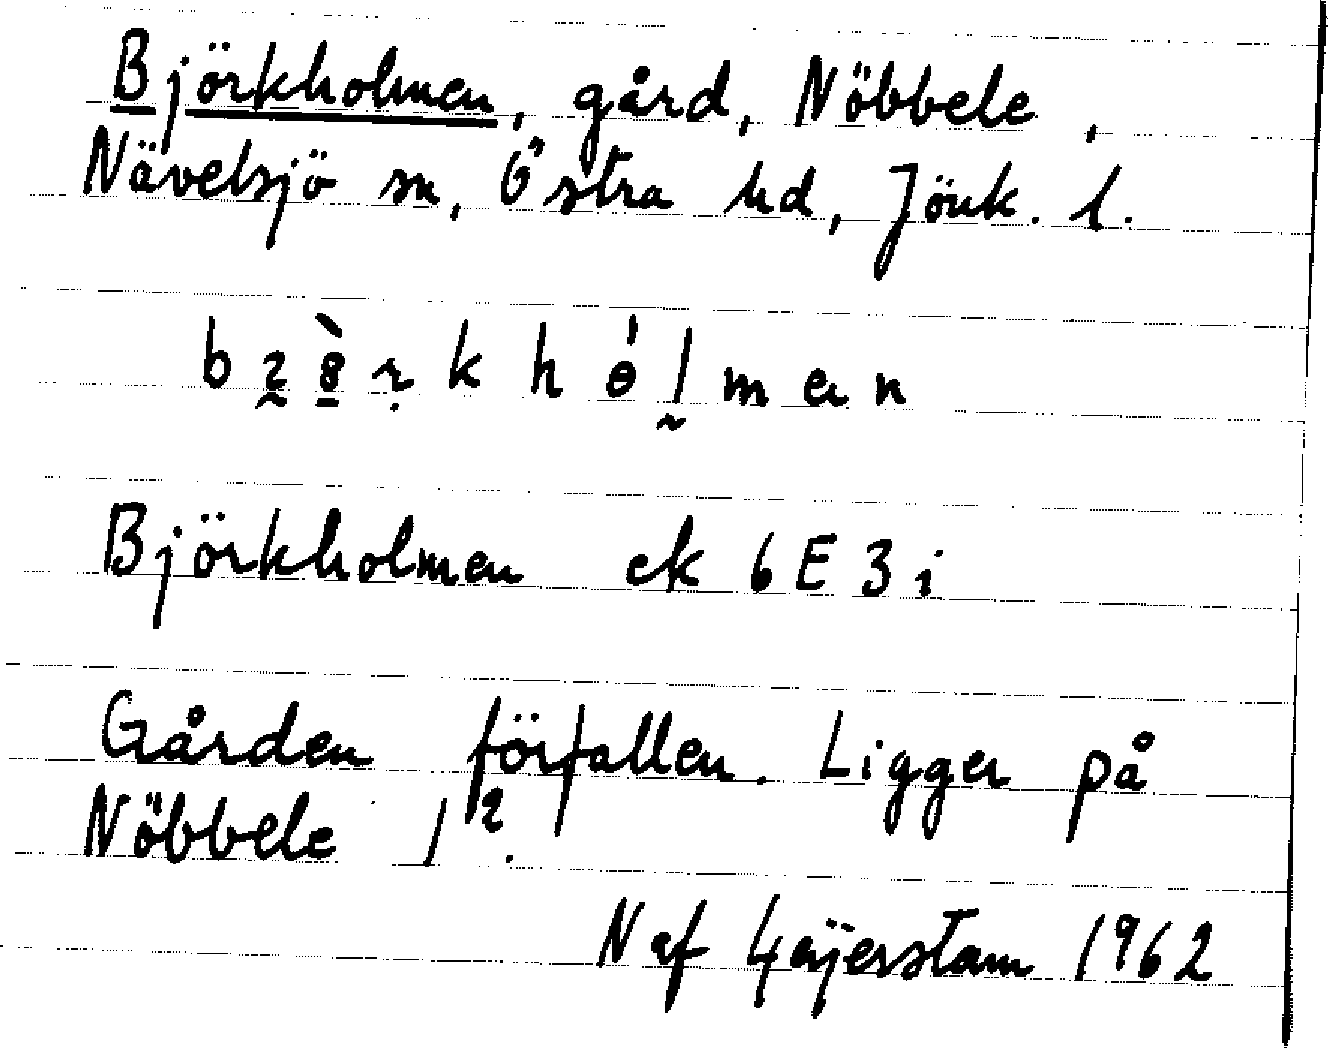 Björkholmen, gård, Nöbbele,
Nävelsjö sn, Östra hd, Jönk. l.
Björkholmen ek 6E3i
Gården förfallen. Ligger på
Nöbbele 1².
N af Geijerstam 1962